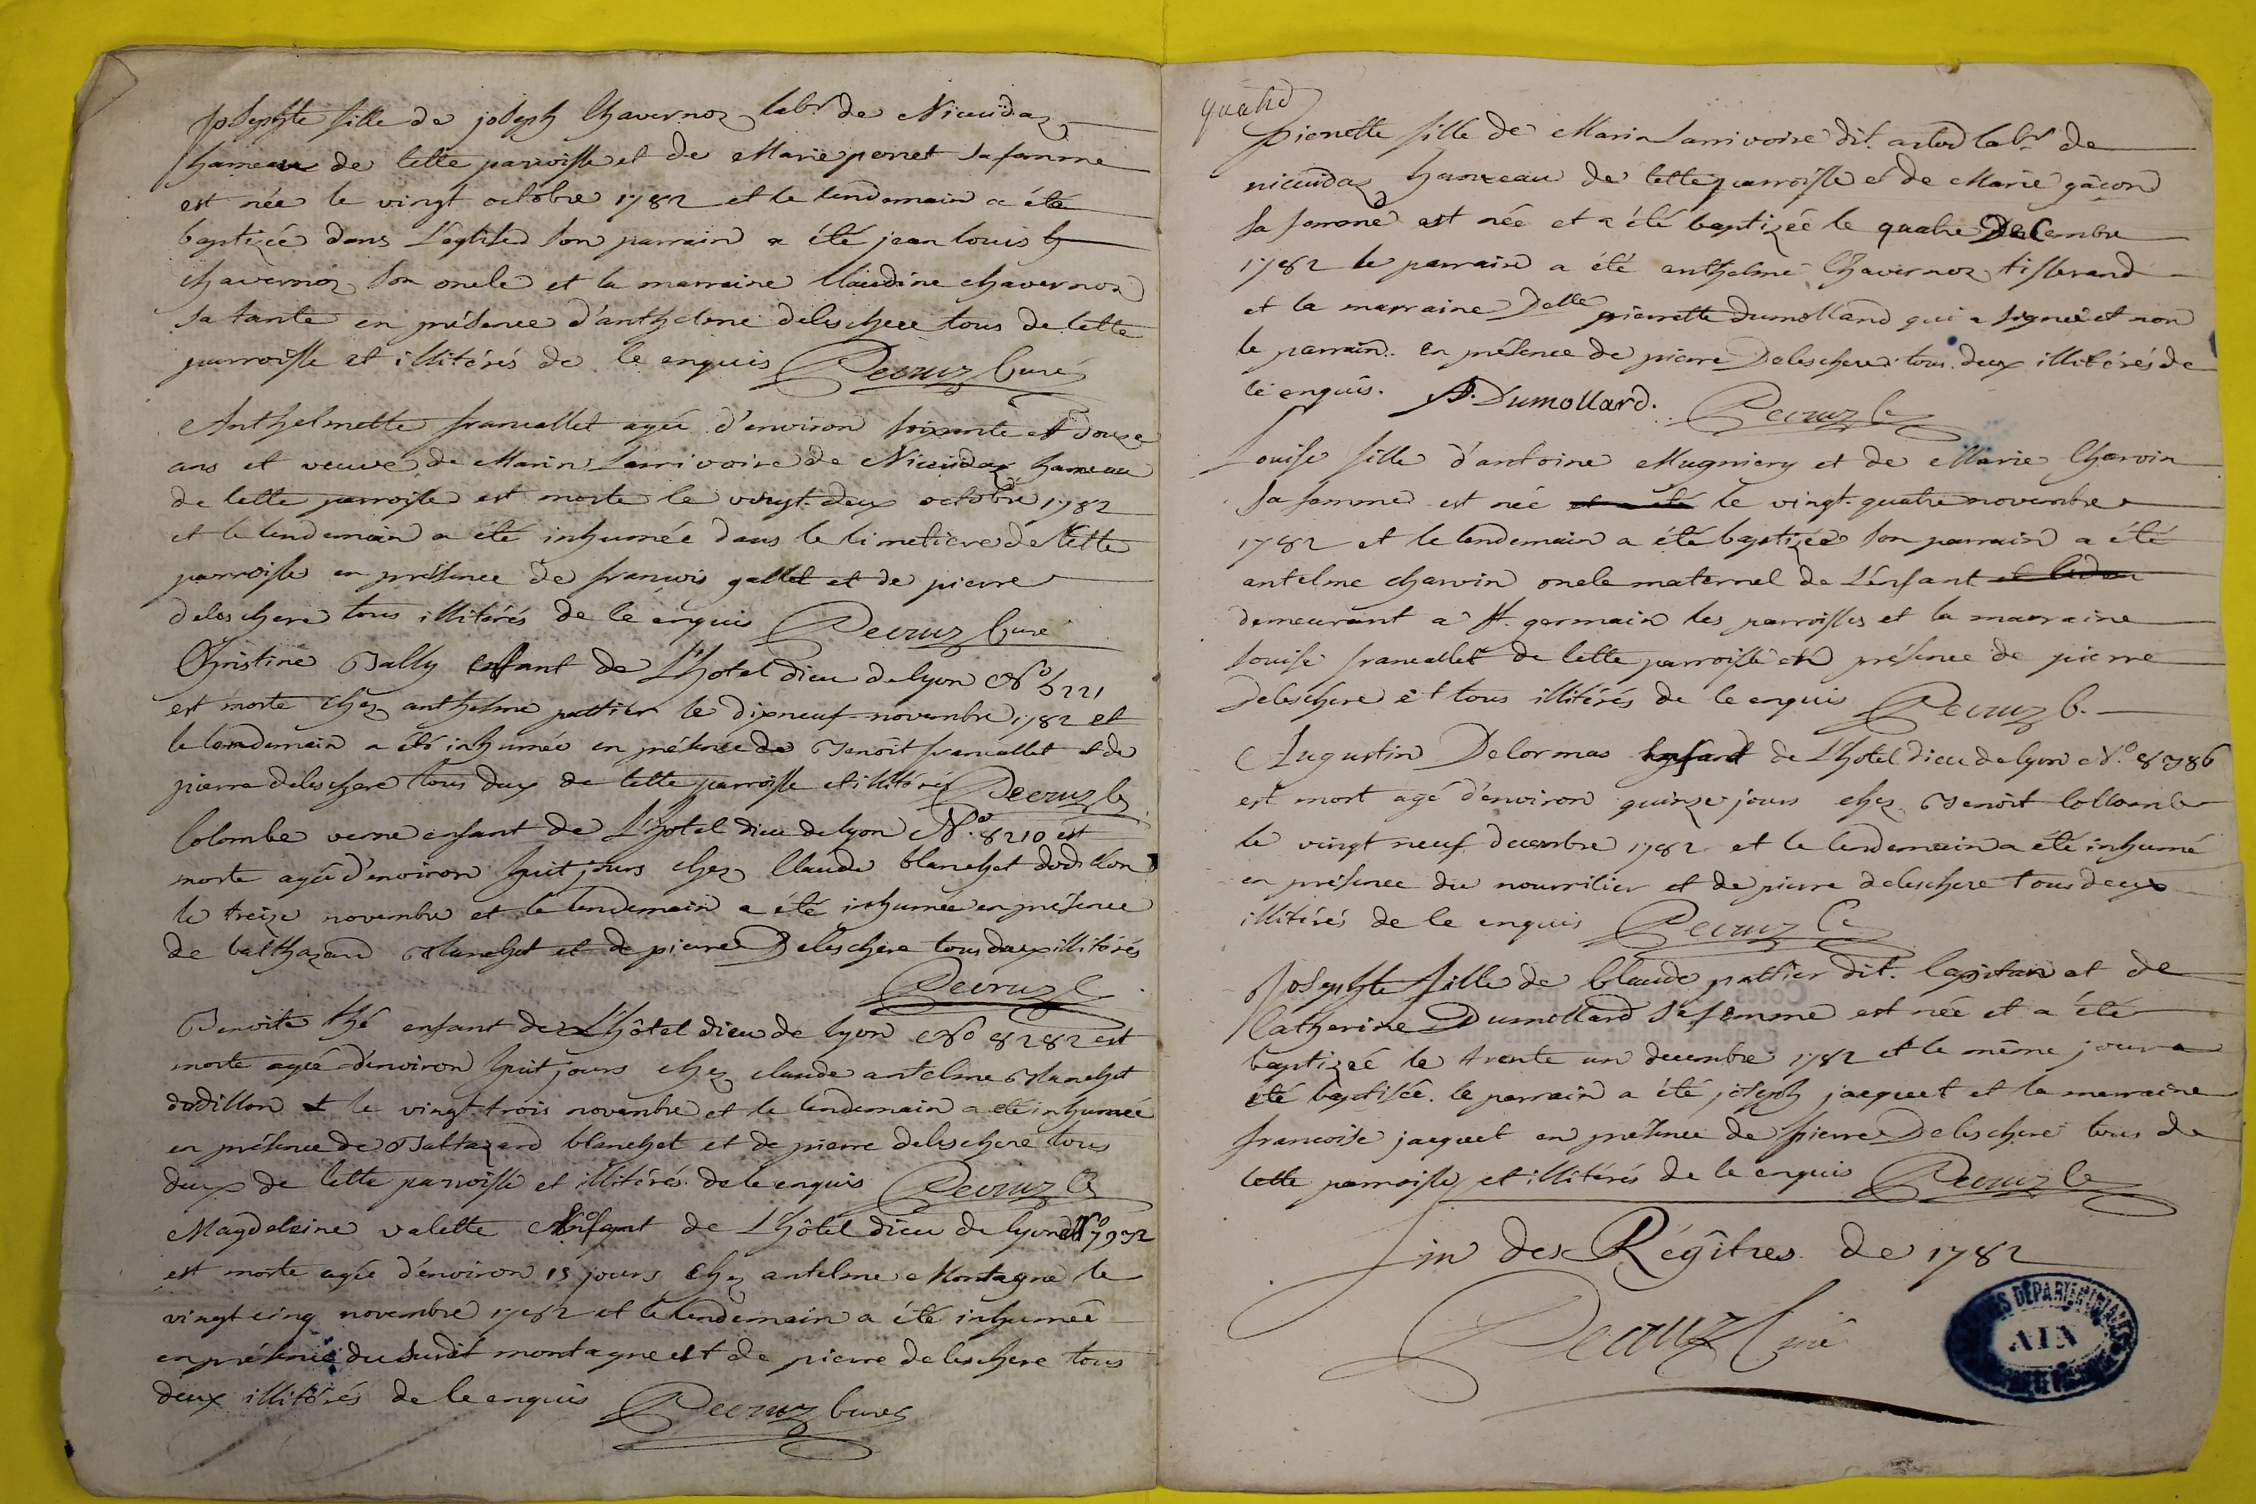 josephte fille de joseph Chavernoz labr. de Nicuidaz
hameau de cette parroisse et de Marie perret sa femme
est née le vingt octobre 1782 et le lendemain a été
baptizée dans L'église son parrain a été jean louis
chavernoz son oncle et la marraine Claudine chavernoz
sa tante en présence d'anthelme deleschere tous de cette
parroisse et illitérés de ce enquis Decruz Curé
Anthelmette francallet agée d'environ soixante et douze
ans et veuve de Marin Larrivoire de Nicuidaz hameau
de cette parroisse est morte le vingt-deux octobre 1782
et le lendemain a été inhumée dans le cimetiere de cette
parroisse en présence de françois gallet et de pierre
deleschere tous illitérés de ce enquis Decruz Curé
Christine Bally enfant de L'hotel dieu de lyon No
est morte chez anthelme pattier le dixneuf novembre 1782 et
le lendemain a été inhumée en présence de Benoît francallet et de
pierre deleschere tous deux de cette parroisse et illitérés Decruz C
Colombe verne enfant de L'hotel dieu de lyon No. 8210 est
morte agée d'environ huit jours chez Claude blanchet dodillon
le treize novembre et le lendemain a été inhumée en présence
de balthazard Blanchet et de pierre Deleschere tous deux illitérés
Decruz C
Benoite thé enfant de L'hôtel dieu de lyon No 8282 est
morte agée d'environ huit jours chez claude antelme Blanchet
dodillon le vingt-trois novembre et le lendemain a été inhumée
en présence de Battazard blanchet et de pierre deleschere tous
deux de cette parroisse et illitérés de ce enquis Decruz C
Magdeleine valette Enfant de L'hôtel dieu de lyon No 7972
est morte agée d'environ 15 jours chez antelme Montagne le
vingt cinq novembre 1782 et le lendemain a été inhumée
en présence du susdit montagne et de pierre deleschere tous
deux illitérés de ce enquis Decruz Curé
quatre
pierrette fille de Marin Larrivoire dit labr de
nicuidaz hameau de cette parroisse et de Marie gâçon
sa femme est née et a été baptizée le quatre Decembre
1782 le parrain a été anthelme Chavernoz tisserand
et la marraine Delle pierrette dumolland qui a signé et non
le parrain. en présence de pierre Deleschere tous deux illitérés de
ce enquis. P. Dumollard. Decruz C
Louise fille d'antoine Mugniery et de Marie Charvin
sa femme est née et a été le vingt-quatre novembre
1782 et le lendemain a été baptizée son parrain a été
antelme charvin oncle maternel de L'enfant
demeurant a st. germain les parroisses et la marraine
Louise francallet de cette parroisse en présence de pierre
deleschere et tous illitérés de ce enquis Decruz C.
Augustin Delormas enfant de L'hotel dieu de lyon No. 8386
est mort agé d'environ quinze jours chez Benoît Collomb
le vingt neuf decembre 1782 et le lendemain a été inhumé
en présence du nourricier et de pierre deleschere tous deux
illitérés de ce enquis Decruz C
Josephte fille de Claude pattier dit. Capitan et de
Catherine Dumollard sa femme est née et a été
baptizée le trente un decembre 1782 et le même jour a
été baptisée. le parrain a été joseph jacquet et la marraine
francoise jacquet en présence de pierre Deleschere tous de
cette parroisse et illitérés de ce enquis Decruz C
Fin des Régîtres de 1782
Decruz Curé
DEPARTEMENTALES
AIN